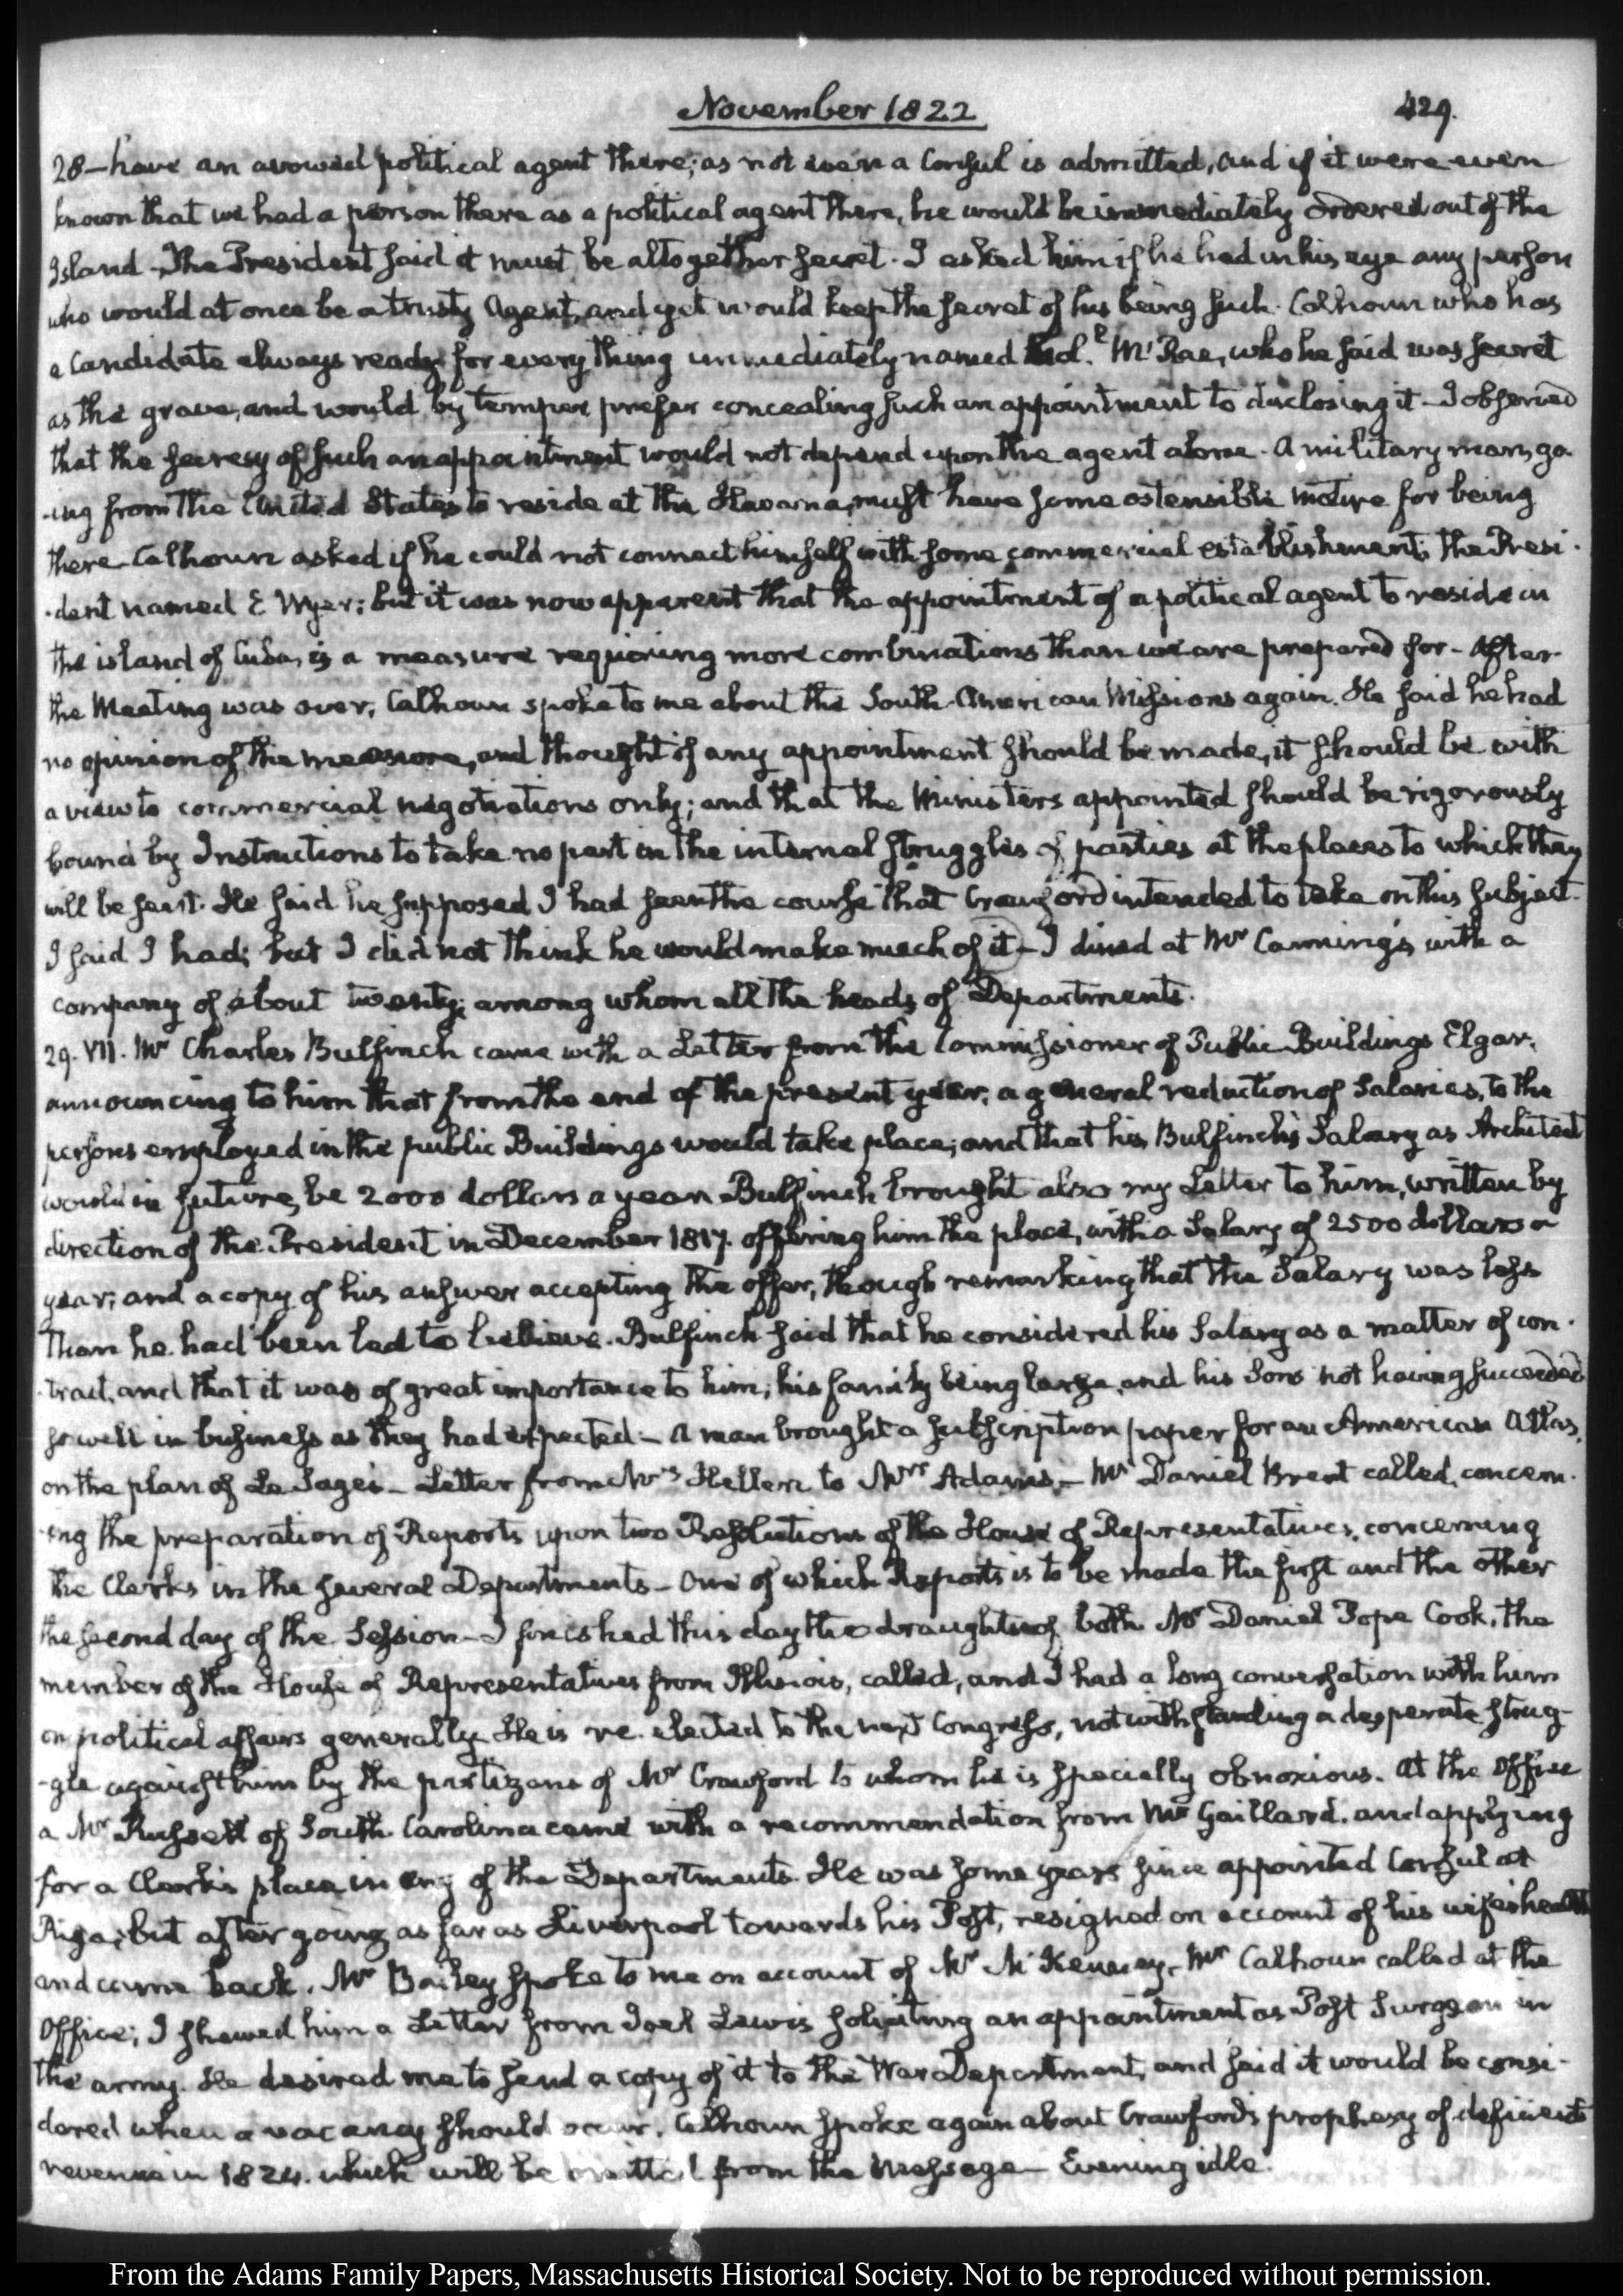 November 1822
429.
28—have an avowed political agent there; as not even a Consul is admitted, and if it were even
known that we had a person there as a political agent there, he would be immediately ordered out of the
Island—The President said it must be altogether secret. I asked him if he had in his eye any person
who would at once be a trusty Agent, and yet would keep the secret of his being such. Calhoun who has
a Candidate always ready for every thing immediately named Col. McRae, who he said was secret
as the grave, and would by temper prefer concealing such an appointment to disclosing it—I observed
that the secresy of such an appointment would not depend upon the agent alone. A military man, go-
-ing from the United States to reside at the Havana, must have some ostensible motive for being
there—Calhoun asked if he could not connect himself with some commercial establishment; the Presi-
-dent named E Wyer; but it was now apparent that the appointment of a political agent to reside in
the island of Cuba, is a measure requiring more combinations than we are prepared for—After
the Meeting was over, Calhoun spoke to me about the South-American Missions again. He said he had
no opinion of the measure, and thought if any appointment should be made, it should be with
a view to commercial negotiations only; and that the Ministers appointed should be rigorously
bound by Instructions to take no part in the internal struggles of parties at the places to which they
will be sent. He said he supposed I had seen the course that Crawford intended to take on this subject.
I said I had; but I did not think he would make much of it—I dined at Mr Canning's with a
company of about twenty; among whom all the heads of Departments.
29. VII. Mr Charles Bulfinch came with a Letter from the Commissioner of Public Buildings Elgar,
announcing to him that from the end of the present year, a general reduction of Salaries, to the
persons employed in the public Buildings would take place; and that his Bulfinch's Salary as Architect
would in future, be 2000 dollars a year. Bulfinch brought also my Letter to him, written by
direction of the President in December 1817. offering him the place, with a Salary of 2500 dollars a
year; and a copy of his answer accepting the offer, though remarking that the Salary was less
than he had been led to believe. Bulfinch said that he considered his Salary as a matter of con-
-tract, and that it was of great importance to him, his family being large, and his Sons not having succeeded
so well in business as they had expected—A man brought a subscription paper for an American Atlas,
on the plan of Le Sage's—Letter from Mrs Hellen to Mrs Adams—Mr Daniel Brent called, concern-
-ing the preparation of Reports upon two Resolutions of the House of Representatives, concerning
the Clerks in the several Departments—One of which Reports is to be made the first and the other
the second day of the Session—I finished this day the draughting of both. Mr Daniel Pope Cook, the
member of the House of Representatives from Illinois, called, and I had a long conversation with him
on political affairs generally. He is re-elected to the next Congress, notwithstanding a desperate strug-
-gle against him by the partizans of Mr Crawford to whom he is specially obnoxious. At the Office
a Mr Russell of South-Carolina came with a recommendation from Mr Gaillard, and applying
for a Clerk's place in any of the Departments. He was some years since appointed Consul at
Riga, but after going as far as Liverpool towards his Post, resigned on account of his wife's health
and came back. Mr Bailey spoke to me on account of Mr McKenney. Mr Calhoun called at the
Office; I shewed him a Letter from Joel Lewis soliciting an appointment as Post Surgeon in
the army. He desired me to send a copy of it to the War Department, and said it would be consi-
dered when a vacancy should occur. Calhoun spoke again about Crawford's prophesy of deficient
revenue in 1824. which will be omitted from the Message—Evening idle.
From the Adams Family Papers, Massachusetts Historical Society. Not to be reproduced without permission.